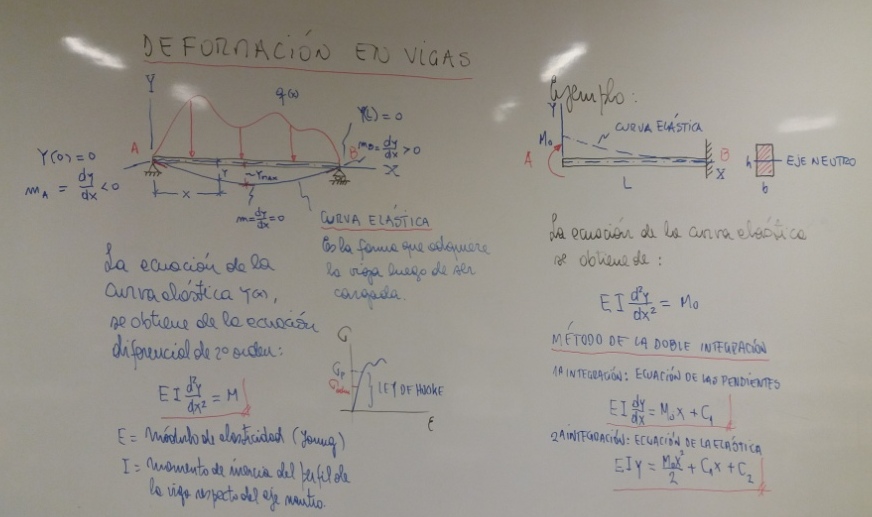 DEFORMACIÓN EN VIGAS
Y
q(x)
Y(L) = 0
A
B
m_B = dy/dx > 0
Y(0) = 0
m_A = dy/dx < 0
X
x
Y
Ymax
m = dy/dx = 0
CURVA ELÁSTICA
Es la forma que adquiere
la viga luego de ser
cargada.
La ecuación de la
curva elástica Y(x),
se obtiene de la ecuación
diferencial de 2º orden:
EI d²y/dx² = M
E = módulo de elasticidad (Young)
I = momento de inercia del perfil de
la viga respecto del eje neutro.
σ
LEY DE HOOKE
ε
Ejemplo:
Y
M₀
CURVA ELÁSTICA
A
B
X
L
h
b
EJE NEUTRO
La ecuación de la curva elástica
se obtiene de:
EI d²y/dx² = M₀
MÉTODO DE LA DOBLE INTEGRACIÓN
1A INTEGRACIÓN: ECUACIÓN DE LAS PENDIENTES
EI dy/dx = M₀x + C₁
2A INTEGRACIÓN: ECUACIÓN DE LA ELÁSTICA
EIy = M₀x²/2 + C₁x + C₂